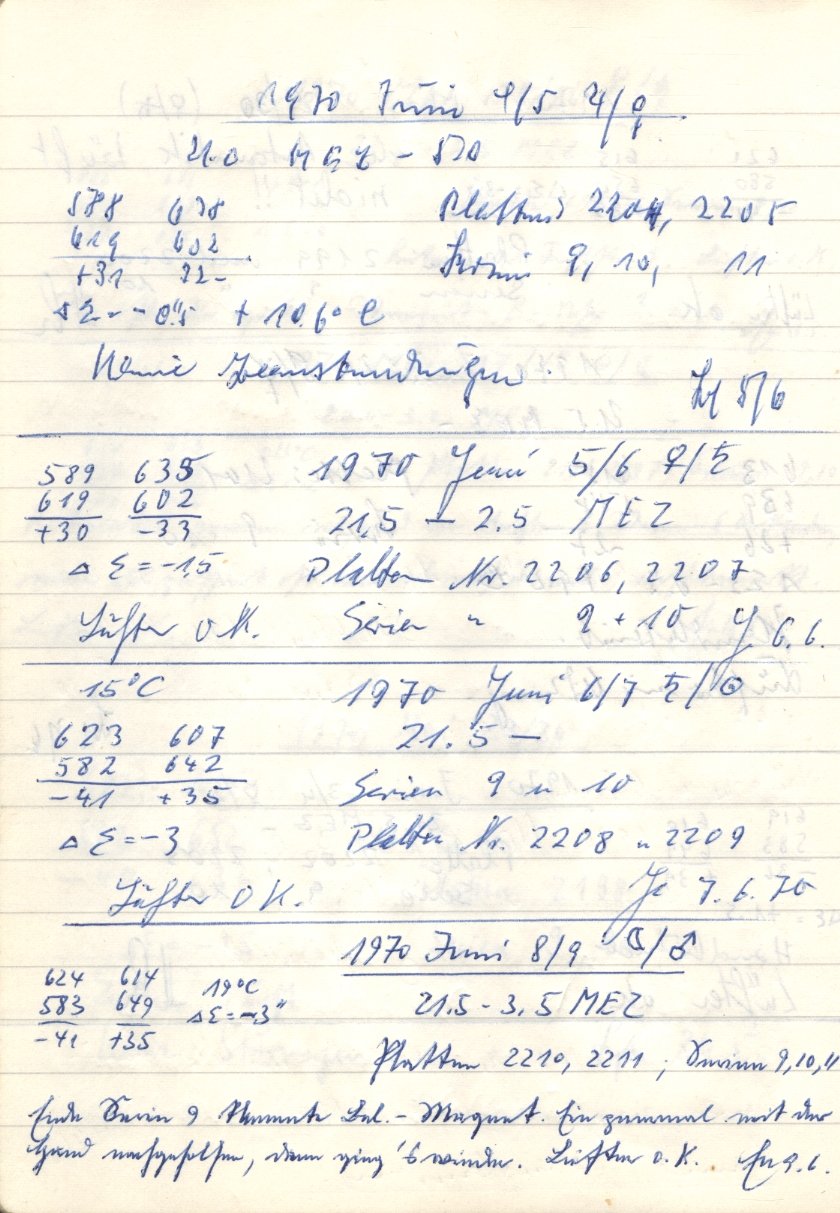 1970 Juni 4/5 ♃/♀
21.0 MEZ - 520
588 638
619 602
+31 32-
Platten 2204, 2205
Serien 9, 10, 11
Δ Σ = -0".5 + 10.6° C
Keine Beanstandungen. 5/6
589 635
619 602
+30 -33
Δ Σ = -1,5
Lüfter O.K.
1970 Juni 5/6 ♀/♄
21,5 — 2.5 MEZ
Platten Nr. 2206, 2207
Serien " 9 + 10 6.6.
15°C
623 607
582 642
-41 +35
Δ Σ = -3
Lüfter OK.
1970 Juni 6/7 ♄/☉
21.5 —
Serien 9 u 10
Platten Nr. 2208 u 2209
7.6.70
1970 Juni 8/9 ☾/♂
624 614
583 649
-41 +35
19°C
Δ Σ = -3"
21.5 - 3.5 MEZ
Platten 2210, 2211 ; Serien 9, 10, 11
Ende Serie 9 klemmte Bel. - Magnet. Ein zweimal mit der
Hand nachgeholfen, dann ging's wieder. Lüfter o.K. 9.6.